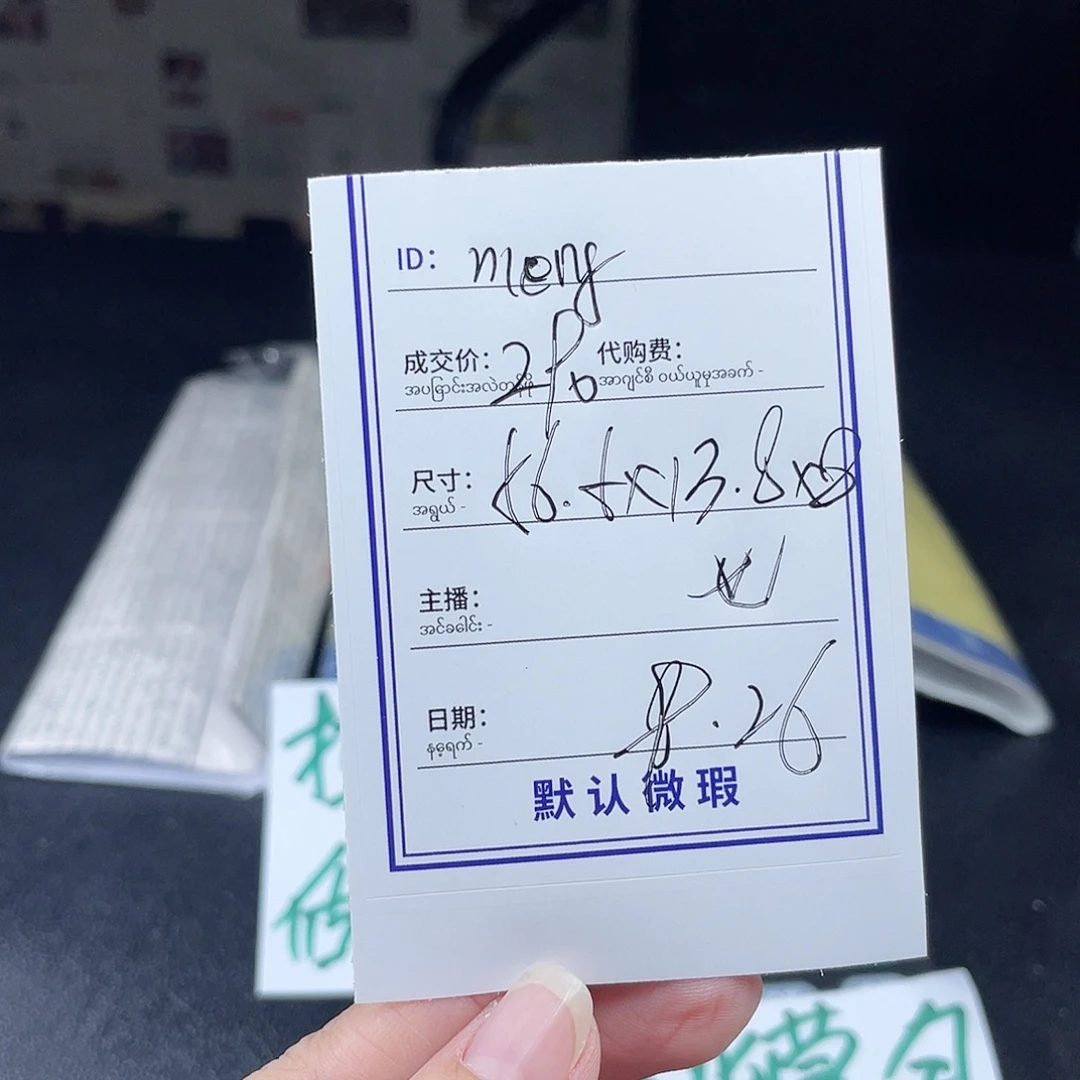 ID: meng
成交价: 代购费:
အပြောင်းအလဲတန်ဖိုး အာဂျင်စီ ဝယ်ယူမှုအခက် -
尺寸: 56.5x13.8x8
အရွယ် -
主播:
အင်ခေါင်း -
日期: 8.26
နေ့ရက် -
默认微瑕